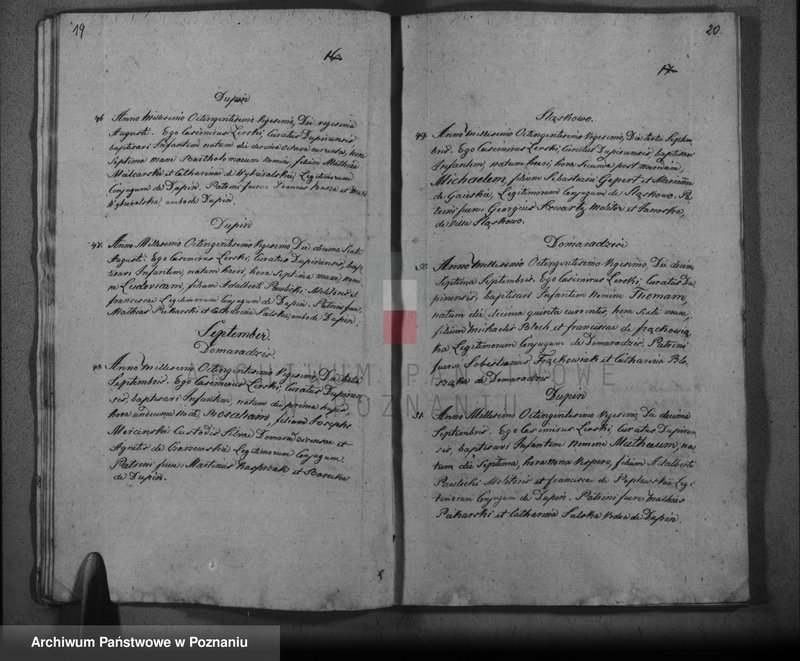 19
16
Dupin
46 Anno Millesimo Octingentesimo Vigesimo, Die vigesima
Augusti. Ego Casimirus Lerski, Curatus Dupinensis
baptisavi Infantem natum die decima Octava currentis, hora
Septima mane Bartholomaeum nomine, filium Mathiae
et Catharinae de Legitimorum
Conjugum de Dupin. Patrini fuer. et
ambo de Dupin.
Dupin
47. Anno Millesimo Octingentesimo Vigesimo Die decima Sext.
Augusti. Ego Casimirus Lerski, Curatus Dupinensis, bap-
tisavi Infantem natum heri, hora Septima mane, nomi-
ne Ludovicam, filiam Adalberti Pawlicki Molitoris et
Franciscae Legitimorum Conjugum de Dupin. Patrini fuer.
Mathias Piekarski et Catharina Sulska, ambo de Dupin.
September
Domaradzice
48. Anno Millesimo Octingentesimo Vigesimo, Die tertia
Septembris. Ego Casimirus Lerski, Curatus Dupinen-
sis, baptisavi Infantem, natum die prima hujus
hora undecima noct. filiam Josephi
Custodis Silvae Domaradzicensis et
Agnetis de Legitimorum Conjugum.
Patrini fuer. Martinus Kasprzak et
de Dupin.
20
17
Sląskowo.
49. Anno Millesimo Octingentesimo Vigesimo, Die tertia Septem-
bris. Ego Casimirus Lerski, Curatus Dupinensis, baptisavi
Infantem, natum heri, hora Secunda post meridiem,
Michaelem, filium Sebastiani Gepert et Mariannae
de Legitimorum Conjugum de Sląskowo. Pa-
trini fuer. Georgius Szwartz et
de Villa Sląskowo.
Domaradzice
50. Anno Millesimo Octingentesimo Vigesimo, Die decima
Septima Septembris. Ego Casimirus Lerski, Curatus Du-
pinensis, baptisavi Infantem nomine Thomam,
natum die decima quinta currentis, hora Sexta mane,
filium Michaelis Bloch et Franciscae de Frąckowia-
ka Legitimorum Conjugum de Domaradzice. Patrini
fuer. Sebestianus Frąckowiak et Catharina Blo-
szaka de Domaradzice
Dupin
51. Anno Millesimo Octingentesimo Vigesimo, Die decima
Septembris. Ego Casimirus Lerski, Curatus Dupinen-
sis, baptisavi Infantem nomine Mathaeum, na-
tum die Septima, hora nona Vespere, filium Adalberti
Pawlicki Molitoris et Franciscae de Legi-
timorum Conjugum de Dupin. Patrini fuer. Mathias
Piekarski et Catharina Sulska de Dupin.
ARCHIWUM PAŃSTWOWE
W POZNANIU
Archiwum Państwowe w Poznaniu